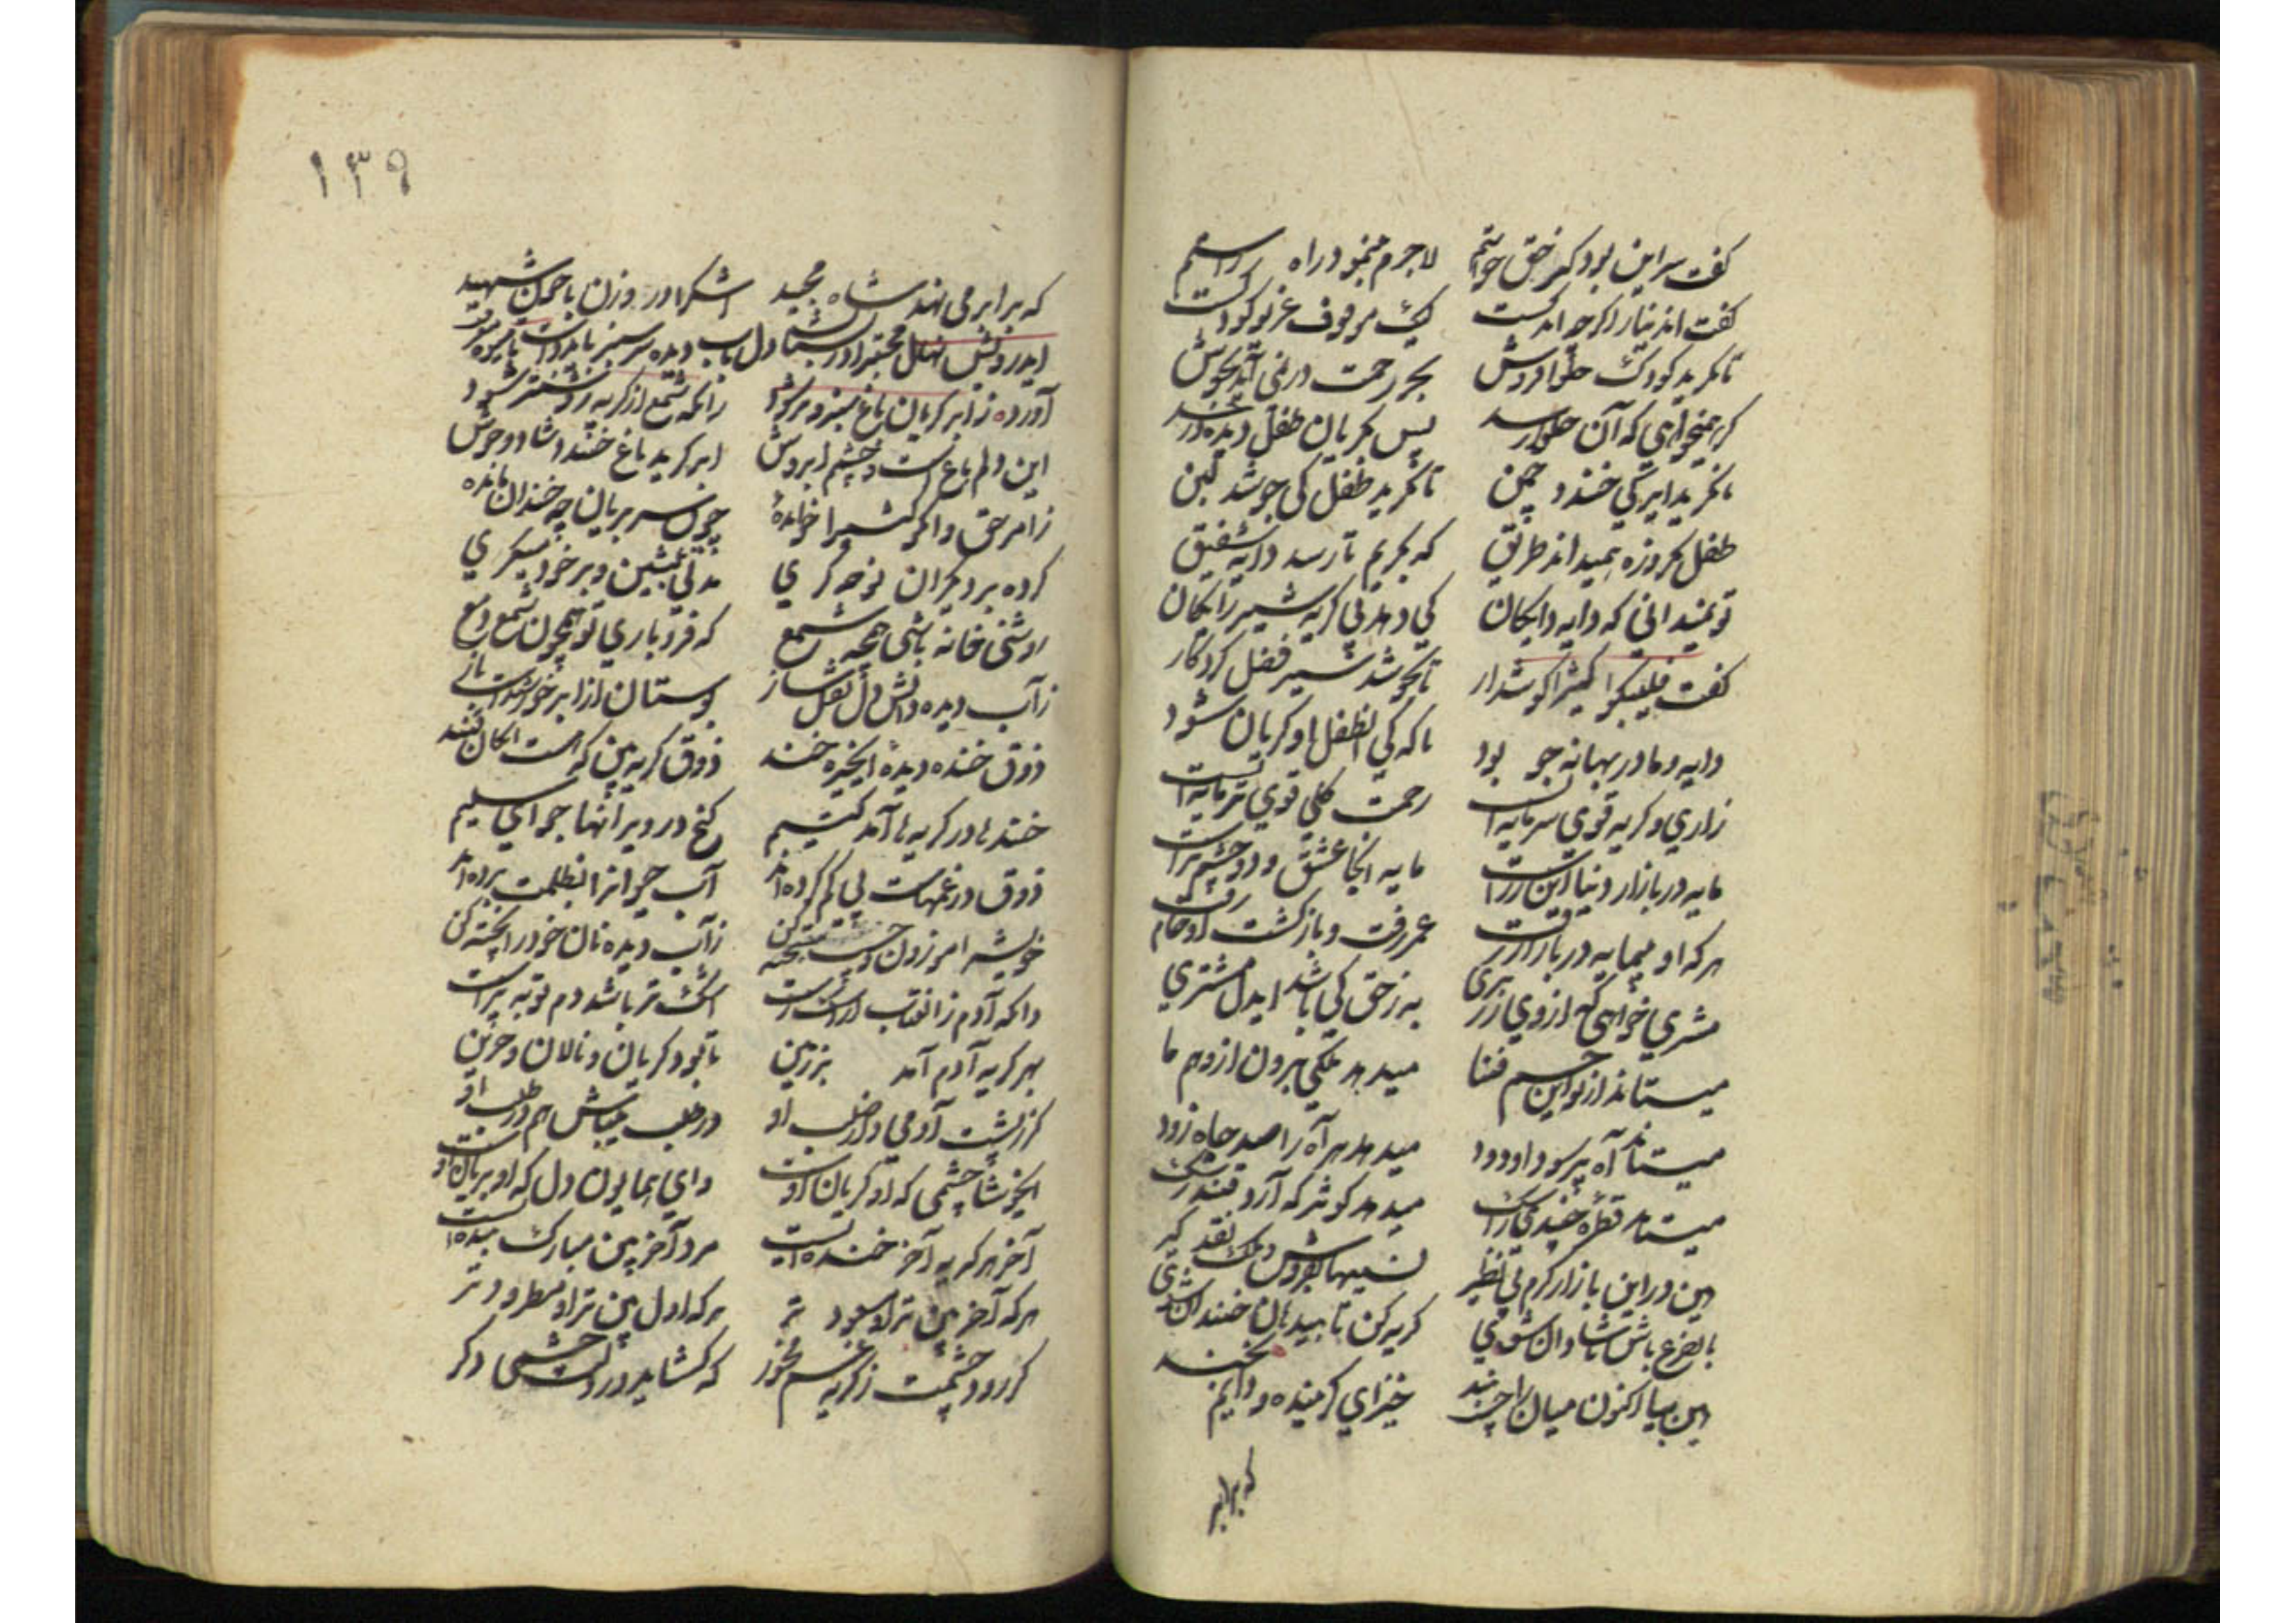 کفت سر این بود کز حق خواستم لاجرم بنمود راه راستم
کفت ان دینار اکر چه اندکست لیک موقوف غریو کودکست
تا نکرید کودک حلوا فروش بحر رحمت در نمی آید بجوش
کر همیخواهی که آن حلوا رسد پس بکریان طفل دیده
تا نکرید ابر کی خندد چمن تا نکرید طفل کی جوشد لبن
طفل یکروزه همیداند طریق که بکریم تا رسد دایه شفیق
تو نمیدانی که دایه دایکان کی دهد بی کریه شیر رایکان
کفت فلیبکوا کثیرا کوش دار تا بجوشد شیر فضل کردکار
دایه و مادر بهانه جو بود تا که کی آن طفل او کریان شود
زاری و کریه قوی سرمایه است رحمت کلی قوی تر دایه است
مایه در بازار دنیا این زرست مایه اینجا عشق و دو چشم ترست
هر که او بیمایه در بازار رفت عمر رفت و باز کشت او خام رفت
مشتری خواهی که از وی زر بری به ز حق کی باشد ایدل مشتری
میستاند از تو این جسم فنا میدهد ملکی برون از وهم ما
میستاند آه پر سودا و دود میدهد هر آه را صد جاه زود
میستاند قطره چندی ز اشک میدهد کوثر که آرد قند رشک
هین در این بازار کرم بی نظیر نسیها بفروش و ملک نقد کیر
با تضرع باش تا شادان شوی کریه کن تا بیدهان خندان شوی
هین بیا اکنون میان را چست بند خیز ای کرینده و دایم بخند
که برابر
۱۳۹
که برابر می نهد شاه مجید اشک را در وزن با خون شهید
ایدرویش نهال دل باب دیده سرسبز باید داشت تا میوه
آورده ز ابر کریان باغ سبز و تر شود زانکه شمع از کریه روشنتر شود
این دلم باغ است و چشم ابروش ابر کرید باغ خندد شاد و خوش
ز امر حق وابکوا کثیرا خوانده چون سر بریان چه خندان مانده
کرده بر دیکران نوحه کری مدتی بنشین و بر خود میکری
روشنی خانه باشی همچو شمع که فرو باری تو همچون شمع دمع
ز آب دیده دل بوستان از ابر و خورشید است
ذوق خنده دیده ای خیره خند ذوق کریه بین که هست آن کان قند
خندها در کریه ها آمد کتیم کنج در ویرانها جو ای سلیم
ذوق در غمهاست پی کم کرده اند آب حیوانرا بظلمت برده اند
ز آب دیده نان خود را پخته کن
دانکه آدم زان عتاب از اشک رست اشک تر باشد دم توبه پرست
بهر کریه آدم آمد بر زمین تا بود کریان و نالان و حزین
کر ز پشت آدمی وز صلب او در طلب میباش هم در طلب او
ایخوشا چشمی که او کریان اوست وای همایون دل که او بریان اوست
آخر هر کریه آخر خنده ایست مرد آخر بین مبارک بنده ایست
هر که آخر بین تر او مسعود تر هر که اول بین تر او مطرود تر
کر رود چشمت ز کریه غم مخور که کشاید در دلت چشمی دکر